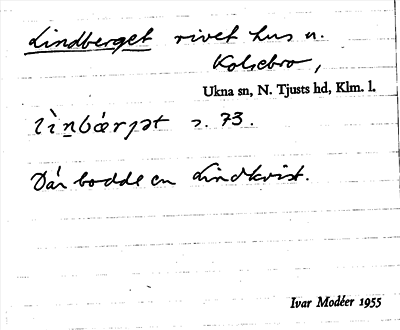 Lindberget rivet hus u.
Kolsebro,
Ukna sn, N. Tjusts hd, Klm. l.
lìn̠bǽrjət s. 73.
Där bodde en Lindkvist.
Ivar Modéer 1955